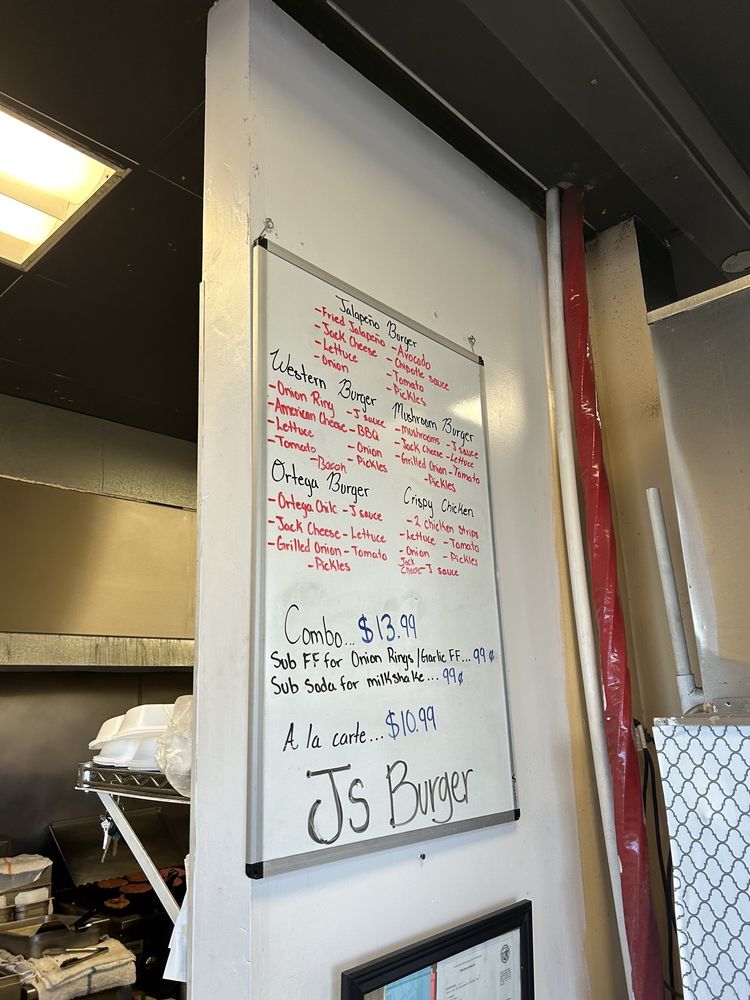 Jalapeño Burger
-Fried Jalapeño -Avocado
-Jack Cheese -Chipotle sauce
-Lettuce -Tomato
-Onion -Pickles
Western Burger
-Onion Ring -J sauce
-American Cheese -BBQ
-Lettuce -Onion
-Tomato -Pickles
-Bacon
Mushroom Burger
-mushrooms -J sauce
-Jack Cheese -Lettuce
-Grilled Onion -Tomato
-Pickles
Ortega Burger
-Ortega Chile -J sauce
-Jack Cheese -Lettuce
-Grilled Onion -Tomato
-Pickles
Crispy Chicken
-2 chicken strips
-Lettuce -Tomato
-Onion -Pickles
Jack Cheese -J sauce
Combo... $13.99
Sub FF for Onion Rings/Garlic FF... 99¢
Sub Soda for milkshake... 99¢
A la carte... $10.99
Js Burger